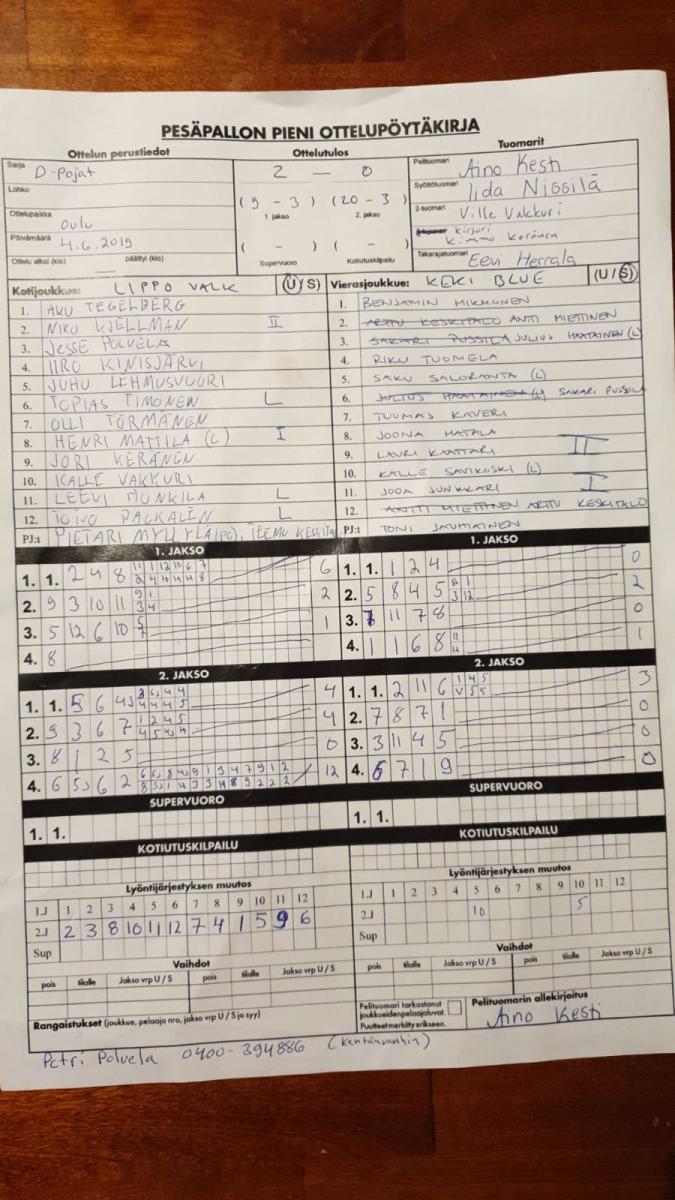 PESÄPALLON PIENI OTTELUPÖYTÄKIRJA
Ottelun perustiedot
Ottelutulos
Tuomarit
Sarja D-pojat
Lohko
Ottelupaikka Oulu
Päivämäärä 4.6.2019
Ottelu alkoi (klo) päättyi (klo)
2 — 0
(9 - 3) (20 - 3)
1. jakso 2. jakso
( - ) ( - )
Supervuoro Kotiutuskilpailu
Pelituomari Aino Kesti
Syöttötuomari Iida Nissilä
2-tuomari Ville Vakkuri
kirjuri Kimmo Keränen
Takarajatuomari Eevi Herrala
Kotijoukkue: LIPPO VALK (U/S)
1. AKU TEGELBERG
2. NIKU KJELLMAN II
3. JESSE POLVELA
4. IIRO KINISJÄRVI
5. JUHU LEHMUSVUORI
6. TOPIAS TIMONEN L
7. OLLI TÖRMÄNEN
8. HENRI MATTILA (L) I
9. JORI KERÄNEN
10. KALLE VAKKURI
11. LEEVI HUNKILA L
12. TOIVO PALKALEN L
PJ:t PIETARI MYLLYLÄ (PC), TEEMU KESKITA
Vierasjoukkue: KEKI BLUE (U/S)
1. BENJAMIN MIKKONEN
2. ARTTU KESKITALO ANTI MIETTINEN
3. SAKARI PUSSILA JULIUS HAATAINEN (L)
4. RIKU TUOMELA
5. SAKU SALORANTA (L)
6. JULIUS HAATAINEN (L) SAKARI PUSSILA
7. TUOMAS KAVERI
8. JOONA HATALA
9. LAURI KAATTARI II
10. KALLE SAVIKOSKI (L)
11. JOOA JUNKKARI I
12. ANTTI MIETTINEN ARTTU KESKITALO
PJ:t TONI JAUHIAINEN
1. JAKSO
1. 1. 2 4 8 6
2. 9 3 10 11 2
3. 5 12 6 10 1
4. 8
1. JAKSO
1. 1. 1 2 4 0
2. 5 8 4 5 2
3. 7 11 7 8 0
4. 1 1 6 8 1
2. JAKSO
1. 1. 5 6 4 4
2. 9 3 6 7 4
3. 8 1 2 5 0
4. 6 5 6 2 12
2. JAKSO
1. 1. 2 11 6 3
2. 7 8 7 1 0
3. 3 11 4 5 0
4. 6 7 1 9 0
SUPERVUORO
1. 1.
SUPERVUORO
1. 1.
KOTIUTUSKILPAILU
KOTIUTUSKILPAILU
Lyöntijärjestyksen muutos
1.J 1 2 3 4 5 6 7 8 9 10 11 12
2.J 2 3 8 10 11 12 7 4 1 5 9 6
Sup
Lyöntijärjestyksen muutos
1.J 1 2 3 4 5 6 7 8 9 10 11 12
2.J 10 5
Sup
Vaihdot
pois tilalle Jakso vrp U / S pois tilalle Jakso vrp U / S
Vaihdot
pois tilalle Jakso vrp U / S pois tilalle Jakso vrp U / S
Rangaistukset (joukkue, pelaaja nro, jakso vrp U / S ja syy)
Pelituomari tarkastanut joukkueidenpelaajaluvat.
Puutteet merkitty erikseen.
Pelituomarin allekirjoitus
Aino Kesti
Petri Polvela 0400-394886 (kentänvanhin)